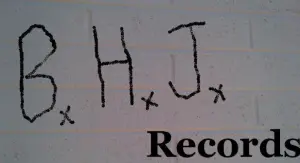 BxHxJx
Records